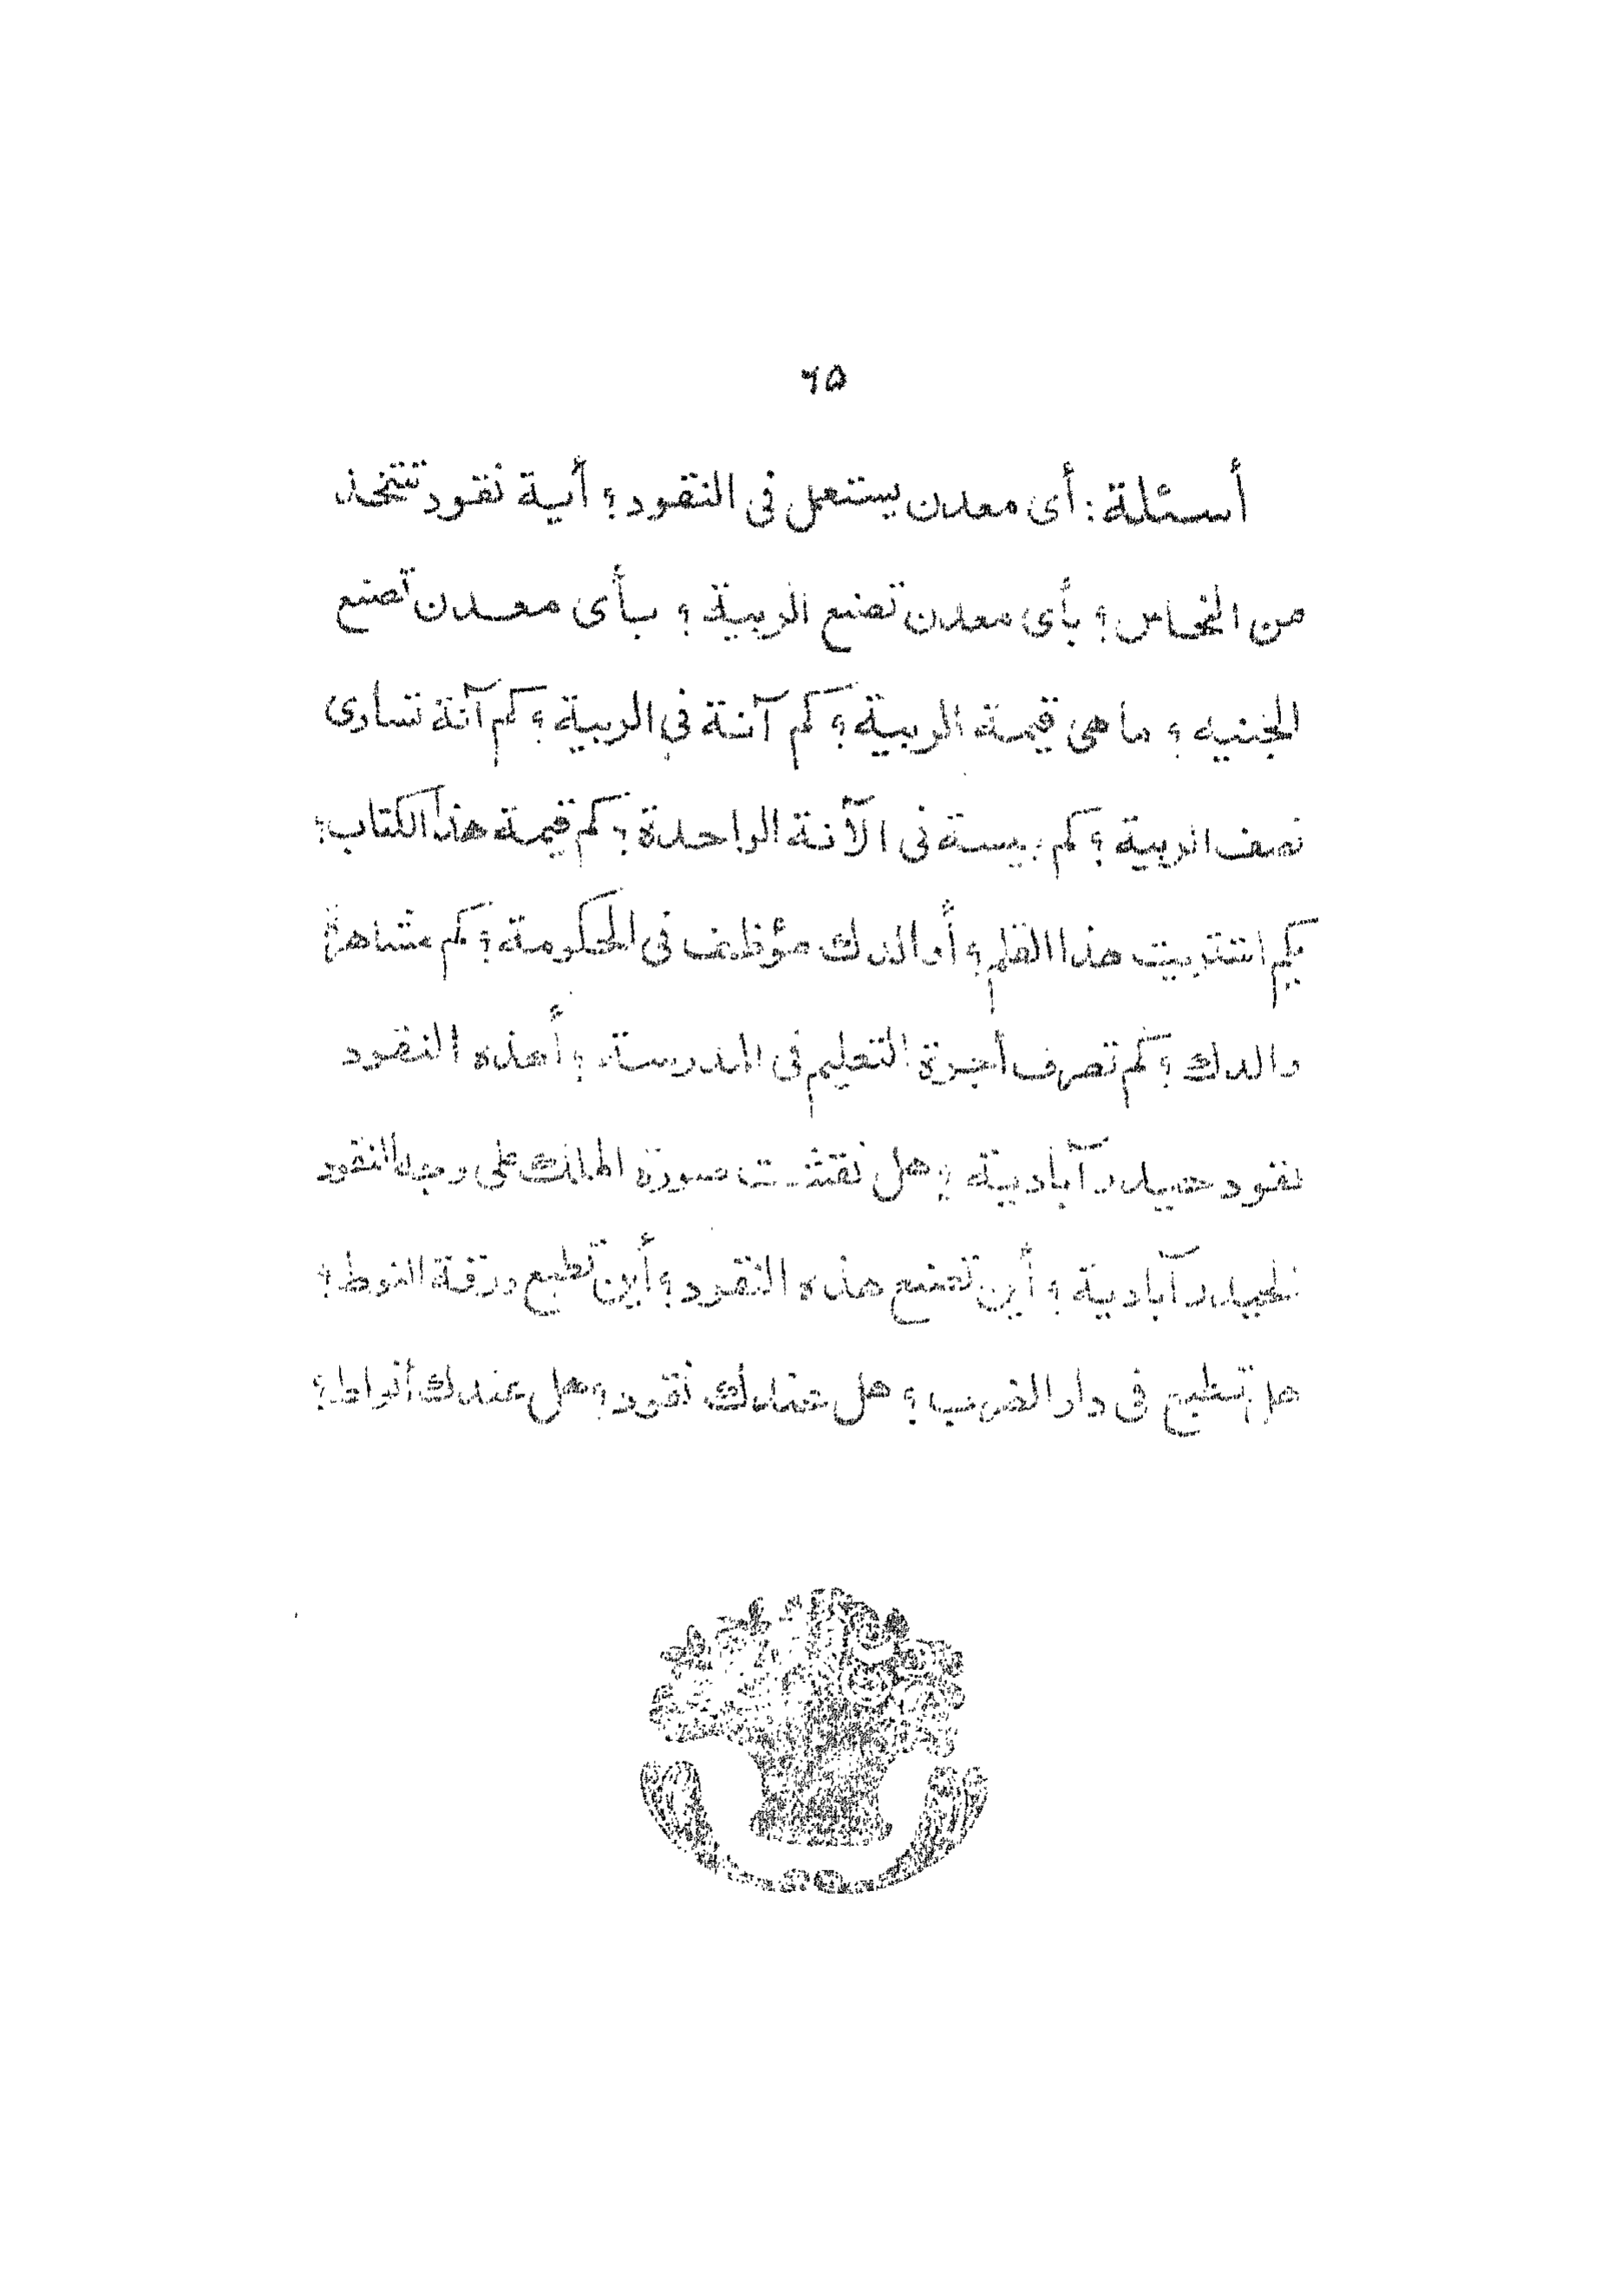 ٦٥
أسئلة: أى معدن يستعمل فى النقود؟ أية نقود تتخذ
من النحاس؟ بأى معدن تصنع الربية؟ بأى معدن تصنع
الجنيه؟ ما هى قيمة الربية؟ كم آنة في الربية؟ كم آنة تساوى
نصف الربية؟ كم بيسة فى الآنة الواحدة؟ كم قيمة هذا الكتاب؟
بكم اشتريت هذا القلم؟ أوالدك مؤظف فى الحكومة؟ كم مشاهرة
والدك؟ كم تصرف أجرة التعليم فى المدرسة؟ أهذه النقود
نقود حيدرآبادية؟ هل نقشت صورة الملك على وجه النقود
الحيدرآبادية؟ أين تصنع هذه النقود؟ أين تطبع ورقة النوط؟
هل تطبع فى دار الضرب؟ هل عندك نقود؟ هل عندك أنواط؟